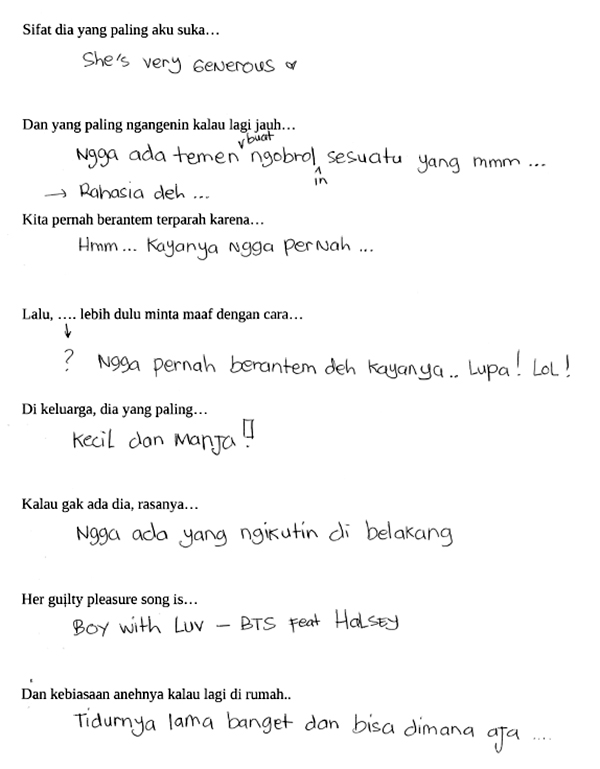 Sifat dia yang paling aku suka…
She's very Generous
Dan yang paling ngangenin kalau lagi jauh…
buat
Ngga ada temen ngobrol sesuatu yang mmm ...
in
→ Rahasia deh ...
Kita pernah berantem terparah karena…
Hmm... Kayanya Ngga Pernah ...
Lalu, …. lebih dulu minta maaf dengan cara…
? Ngga pernah berantem deh kayanya.. Lupa! LoL!
Di keluarga, dia yang paling…
Kecil dan Manja!!
Kalau gak ada dia, rasanya…
Ngga ada yang ngikutin di belakang
Her guilty pleasure song is…
Boy with Luv – BTS Feat Halsey
Dan kebiasaan anehnya kalau lagi di rumah..
Tidurnya lama banget dan bisa dimana aja ....